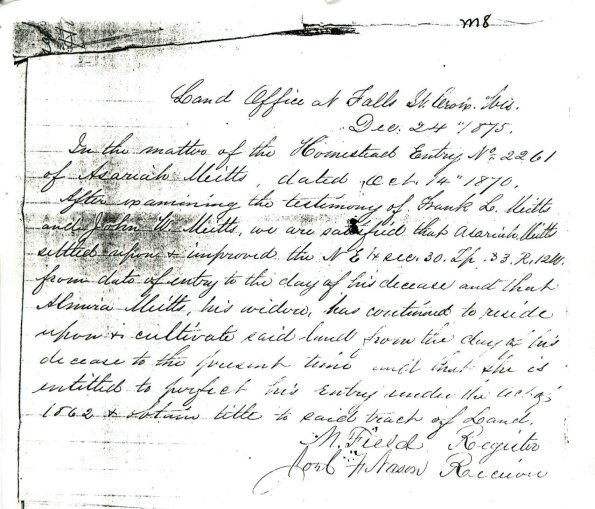 m8
Land Office at Falls St. Croix. Wis.
Dec. 24" 1875.
In the matter of the Homestead Entry No. 2261
of Asariah Meitts, dated Oct. 14" 1870.
After examining the testimony of Frank L. Meitts
and John W. Meitts, we are satisfied that Asariah Meitts
settled upon & improved the N E ¼ sec. 30. Tp. 33. R. 12W.
from date of entry to the day of his decease and that
Almira Meitts, his widow, has continued to reside
upon & cultivate said land from the day of his
decease to the present time and that she is
entitled to perfect his Entry under the act of
1862 & obtain title to said tract of Land.
M. Field Register
Joel F. Nason Receiver